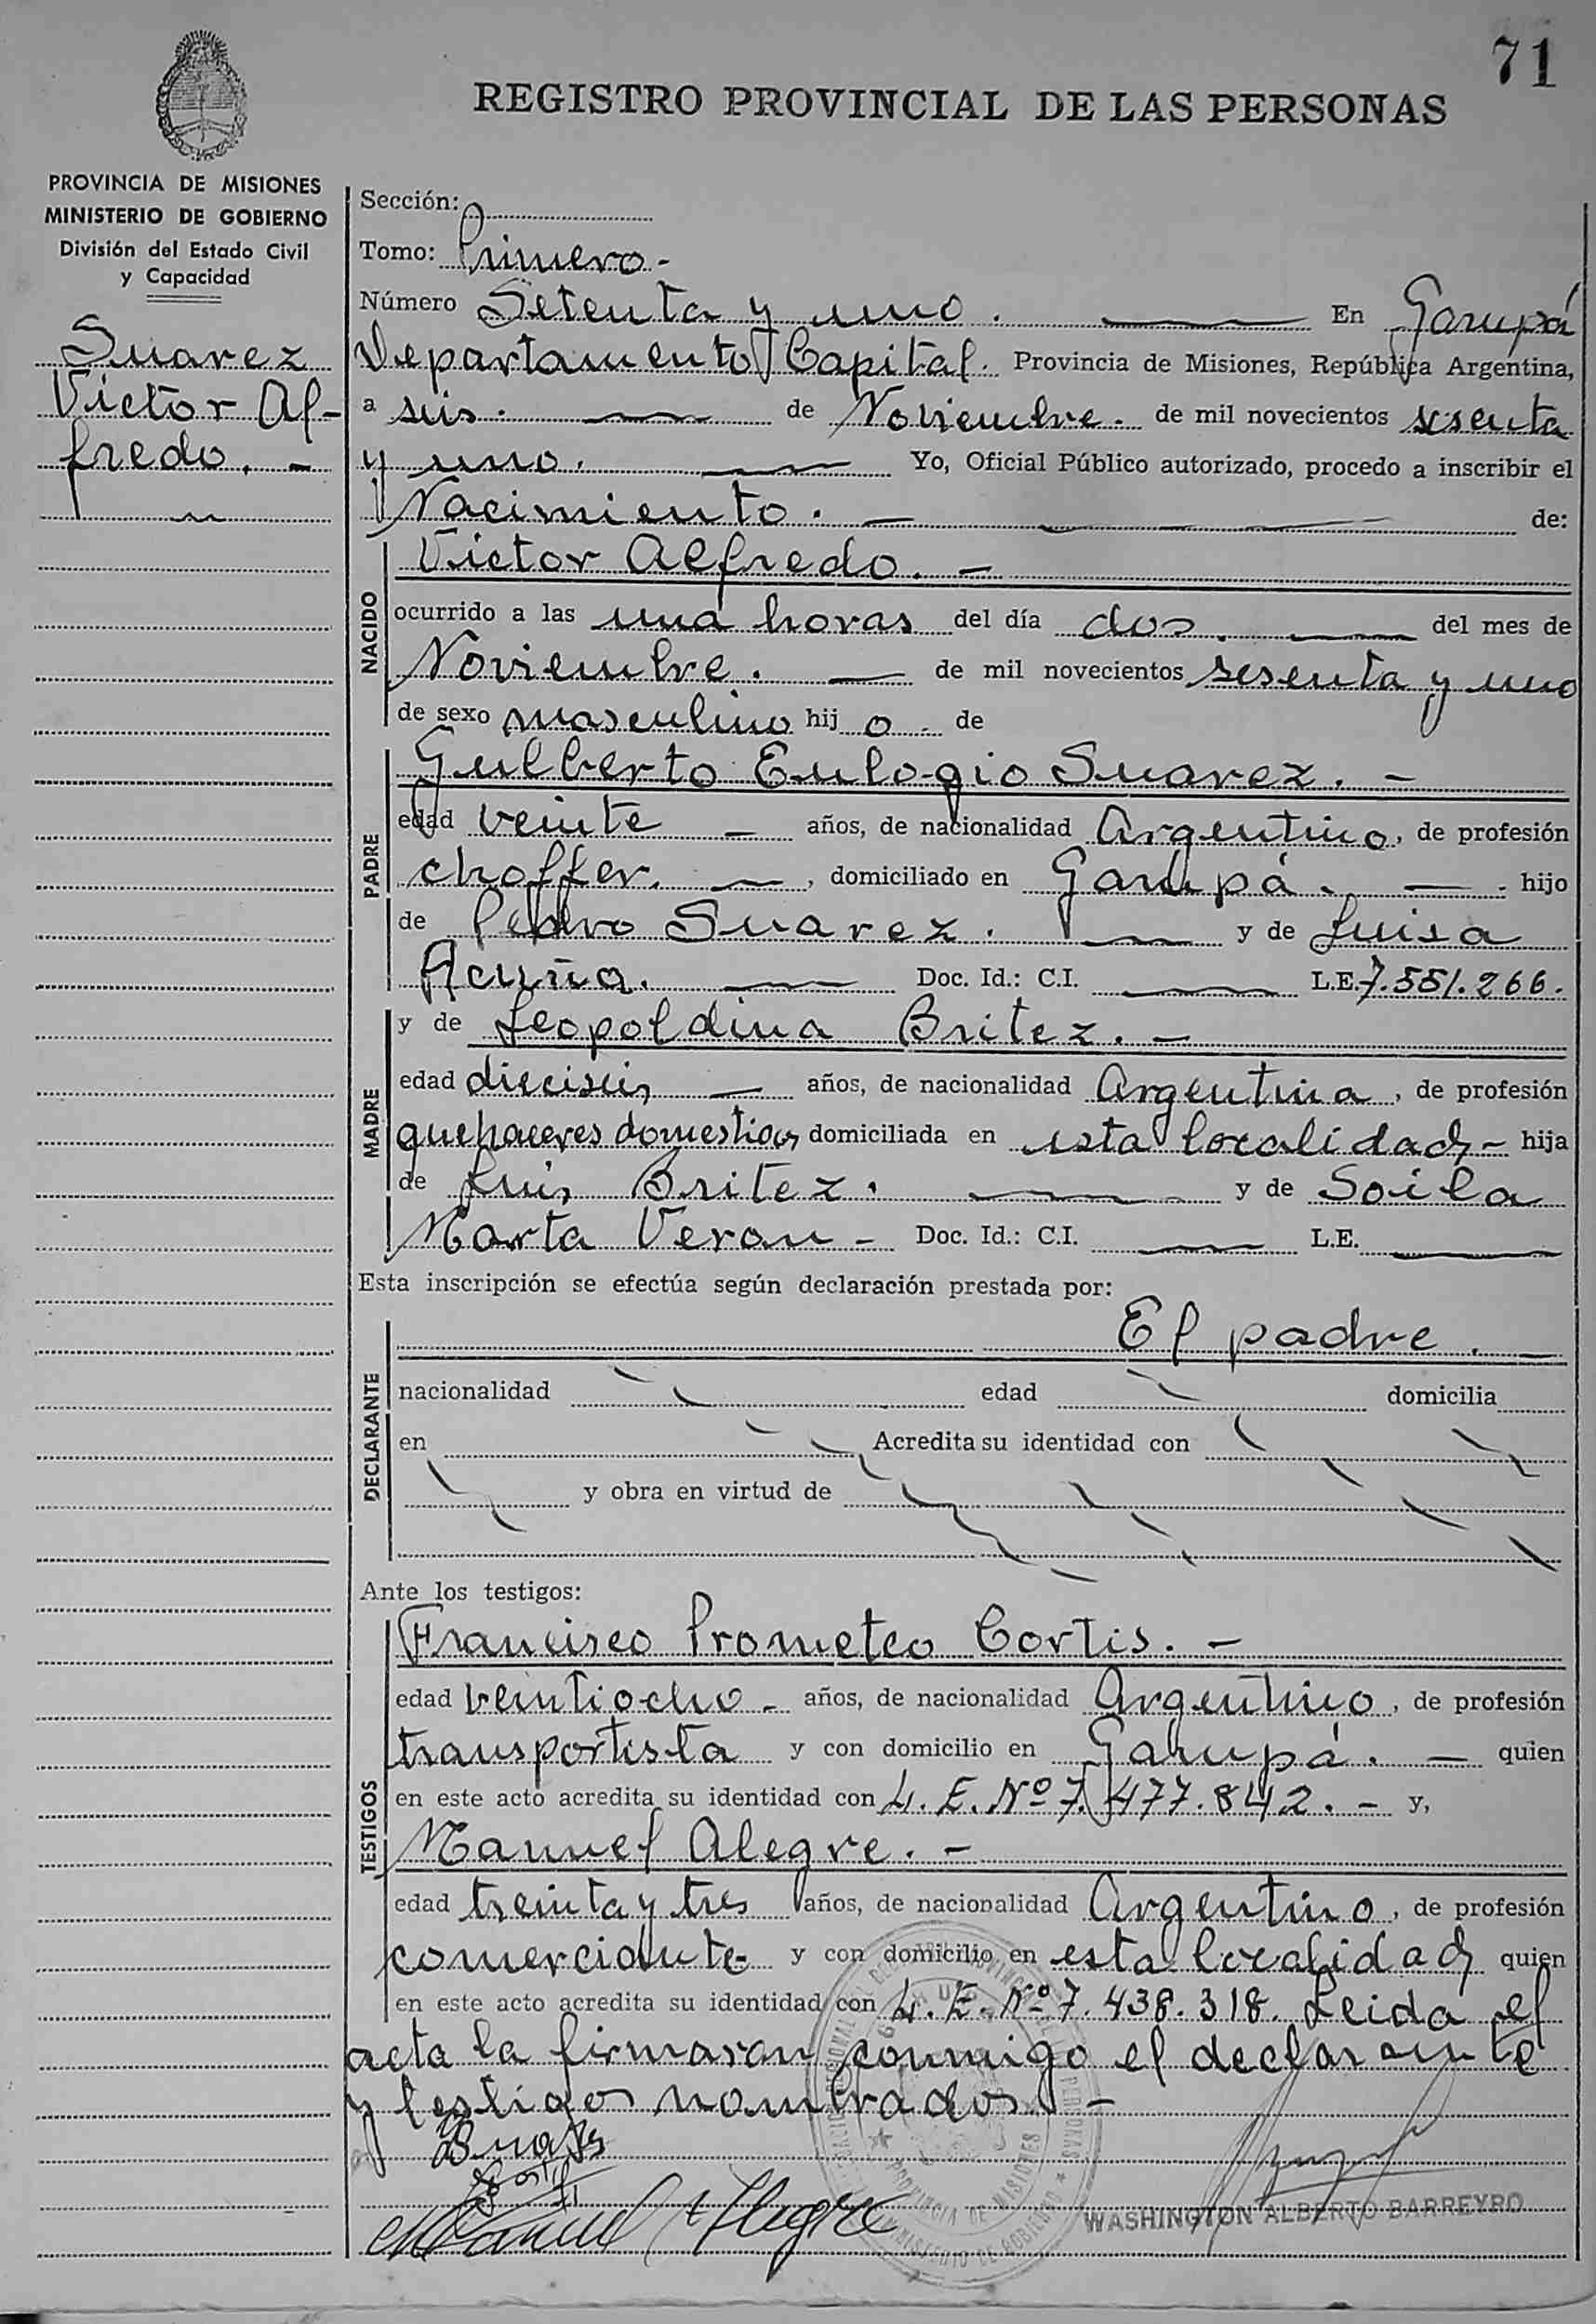 71
REGISTRO PROVINCIAL DE LAS PERSONAS
PROVINCIA DE MISIONES
MINISTERIO DE GOBIERNO
División del Estado Civil
y Capacidad
Suarez
Victor Al-
fredo. -
Sección:
Tomo: Primero -
Número Setenta y uno. En Garupá
Departamento Capital. Provincia de Misiones, República Argentina,
a seis. de Noviembre. de mil novecientos sesenta
y uno. Yo, Oficial Público autorizado, procedo a inscribir el
Nacimiento. - de:
NACIDO
Victor Alfredo. -
ocurrido a las una horas del día dos. del mes de
Noviembre. de mil novecientos sesenta y uno
de sexo masculino hij o - de
PADRE
Gulberto Eulogio Suarez. -
edad veinte - años, de nacionalidad Argentino, de profesión
choffer. , domiciliado en Garupá. - hijo
de Pedro Suarez. y de Luisa
Acuña. Doc. Id.: C.I. L.E. 7.551.266.
MADRE
y de Leopoldina Britez. -
edad dieciseis - años, de nacionalidad Argentina, de profesión
quehaceres domesticos domiciliada en esta localidad - hija
de Luis Britez. y de Soila
Marta Veron - Doc. Id.: C.I. L.E.
Esta inscripción se efectúa según declaración prestada por:
DECLARANTE
El padre. -
nacionalidad edad domicilia
en Acredita su identidad con
y obra en virtud de
Ante los testigos:
TESTIGOS
Francisco Prometeo Cortis. -
edad veintiocho - años, de nacionalidad Argentino, de profesión
transportista y con domicilio en Garupá. - quien
en este acto acredita su identidad con L.E. Nº 7.477.842. - y,
Manuel Alegre. -
edad treinta y tres años, de nacionalidad Argentino, de profesión
comerciante y con domicilio en esta localidad quien
en este acto acredita su identidad con L.E. Nº 7.438.318. Leida el
acta la firmaran conmigo el declarante
y testigos nombrados. -
Manuel Alegre
WASHINGTON ALBERTO BARREYRO
PROVINCIA DE MISIONES
MINISTERIO DE GOBIERNO